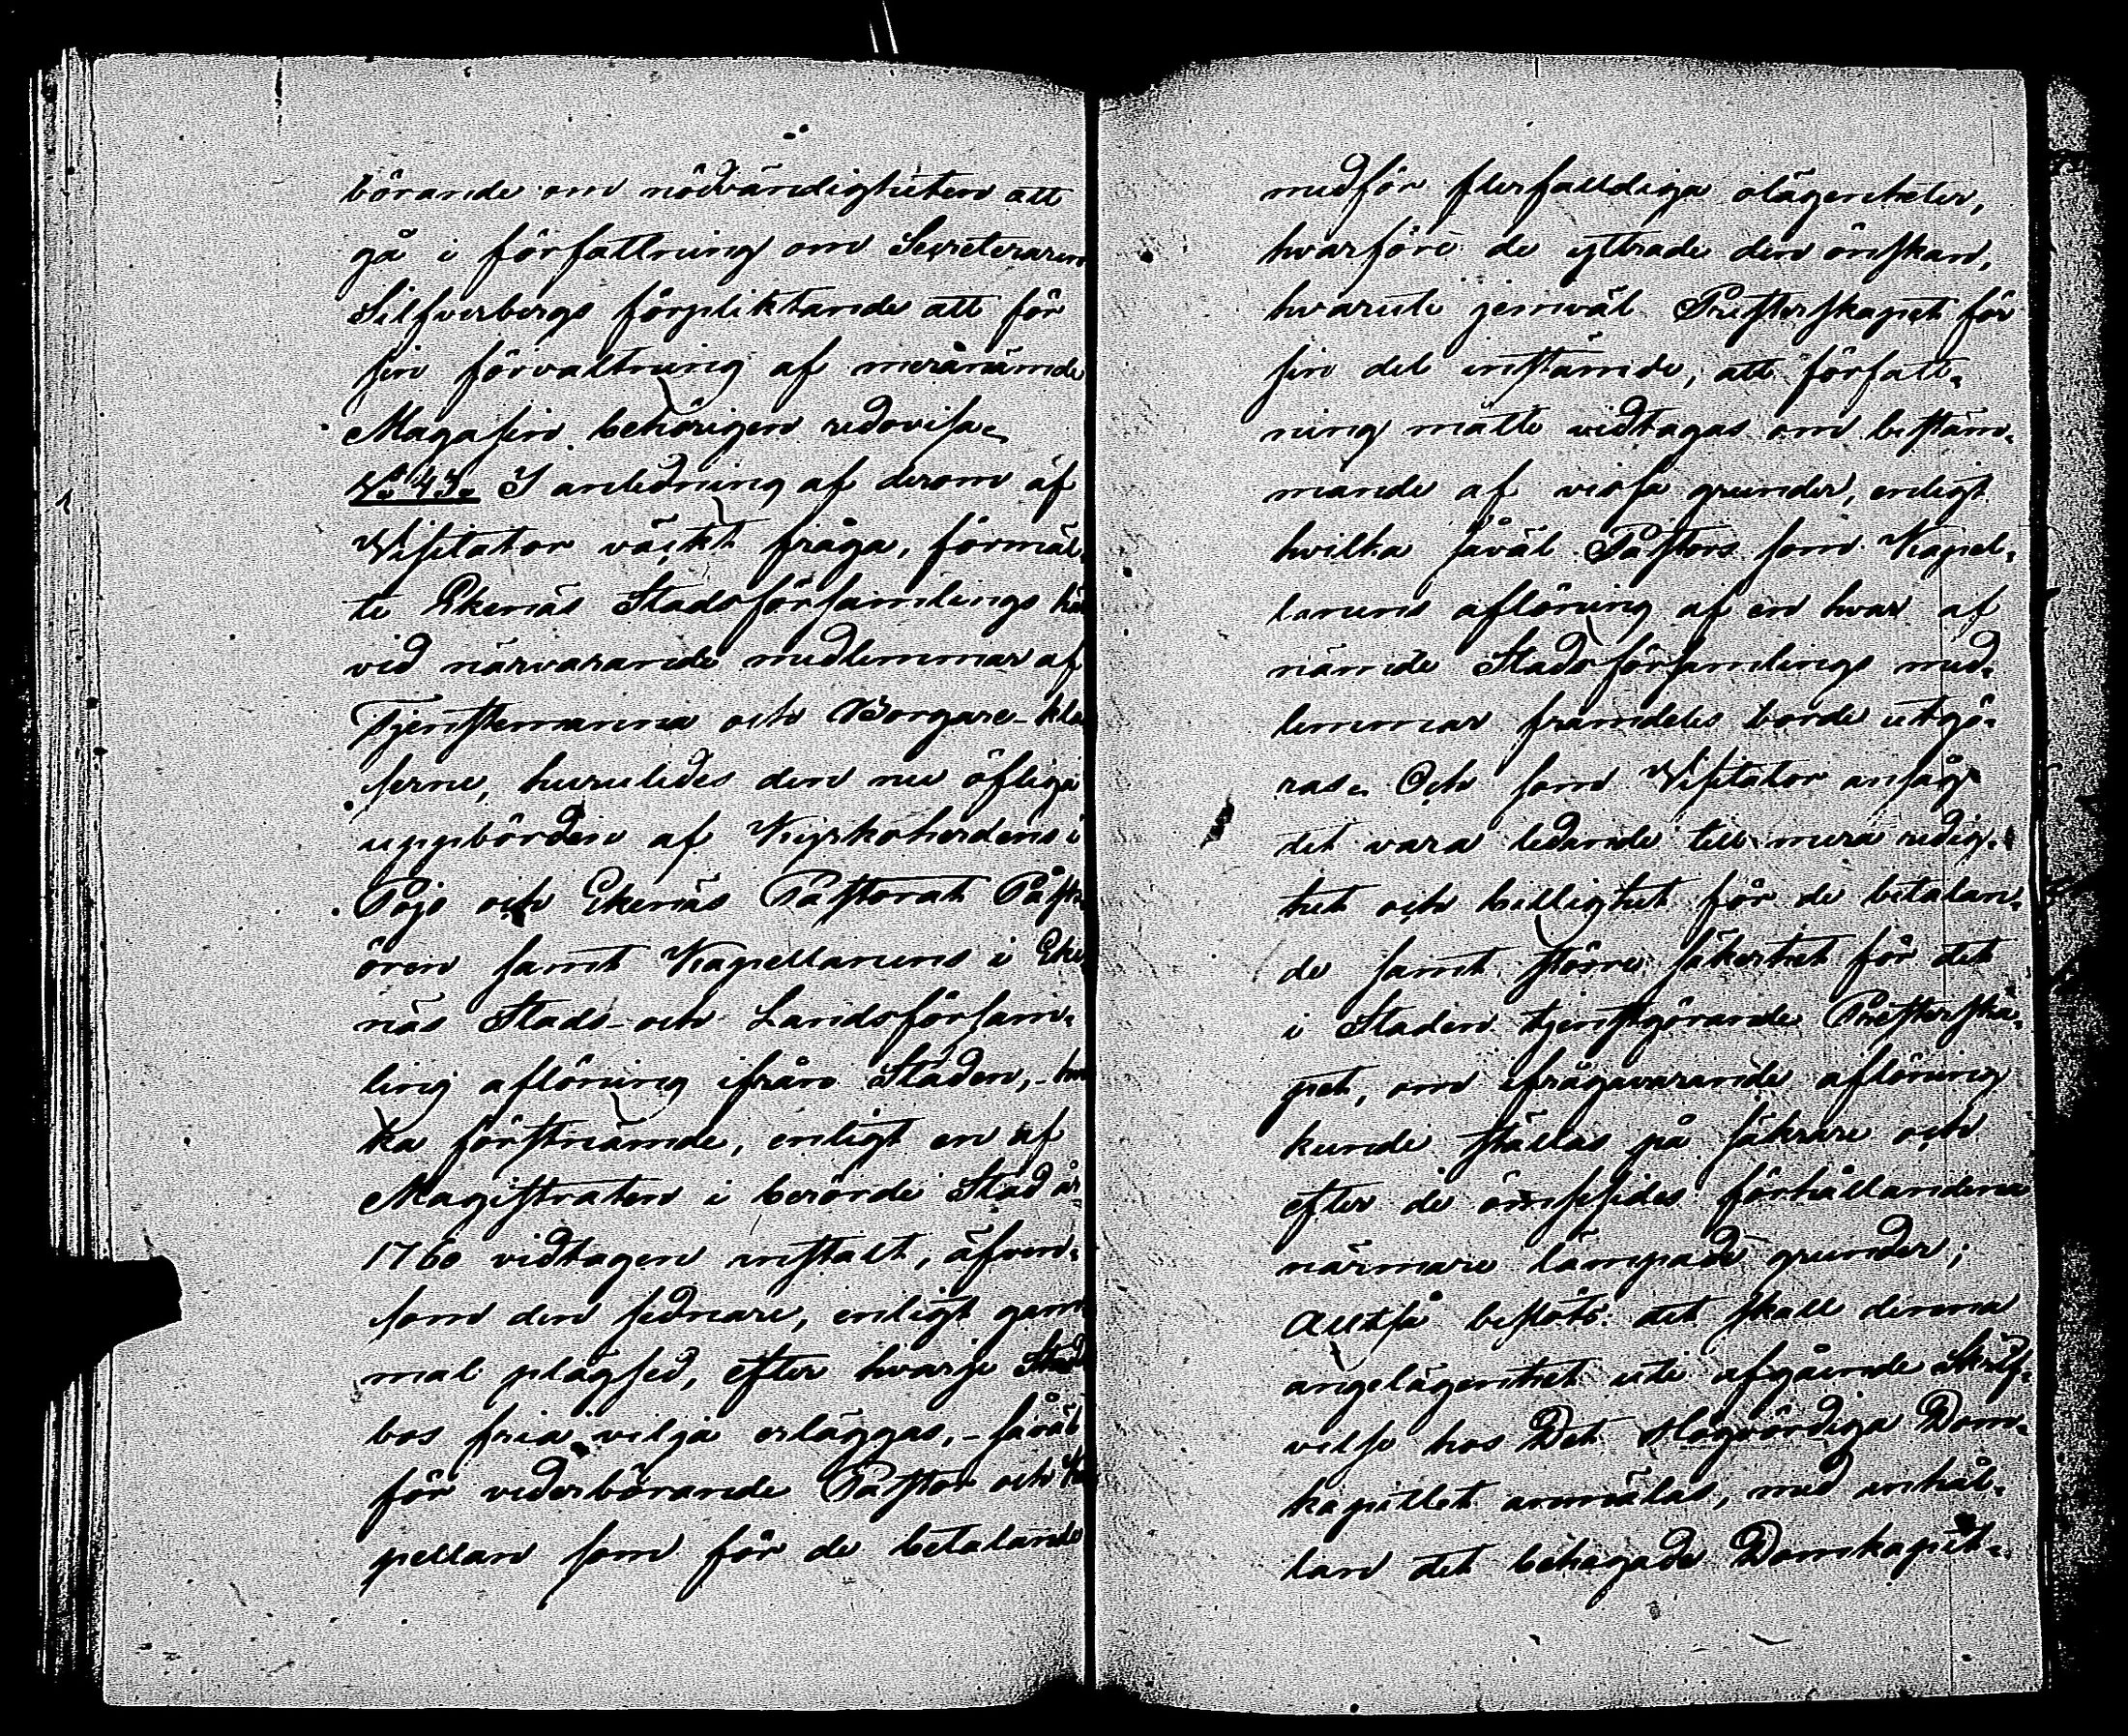 börande om nödvändigheten att
gå i författning om Secreteraren
Silfverbergs förpliktande att för
sin förvaltning af meranämde
Magasin behörigen redovisa.
§ 45. I anledning af derom af
Visitator väckt fråga, förmäl-
te Ekenäs Stadsförsamlings här
vid närvarande medlemmar af
Tjenstemanna och Borgare-klas
serne, huruledes den nu öfliga
uppbörden af Kyrkoherdens i
Pojo och Ekenäs Pastorat Past-
oren samt Kapellanens i Eke-
näs Stads- och Landsförsam-
ling aflöning ifrån Staden, - hvil
ka förstnämde, enligt en af
Magistraten i berörde Stad år
1760 vidtagen anstalt, äfven-
som den sednare, enligt gam
mal plägsed, efter hvarje Stads
bos fria vilja erläggas, - såväl
för vederbörande Pastor och Ka
pellan som för de betalande
medför flerfalldiga olägenheter,
hvarföre de yttrade den önskan,
hvaruti jemväl Presterskapet för
sin del instämde, att författ-
ning måtte vidtagas om bestäm-
mande af vissa grunder, enligt
hvilka såväl Pastors som Kapel-
lanens aflöning af en hvar af
nämde Stadsförsamlings med-
lemmar framdeles borde utgö-
ras. Och som Visitator ansåg
det vara ledande till mera redig-
het och billighet för de betalan-
de samt större säkerhet för det
i Staden tjenstgörande Presterska-
pet, om ifrågavarande aflöning
kunde ställas på säkrare och
efter de ömsesides förhållandena
närmare lämpade grunder;
Alltså beslöts: att skall denna
angelägenhet uti afgående Skrif-
velse hos Det Högvördiga Dom-
kapitlet anmälas, med anhål-
lan det behagade Domkapit-